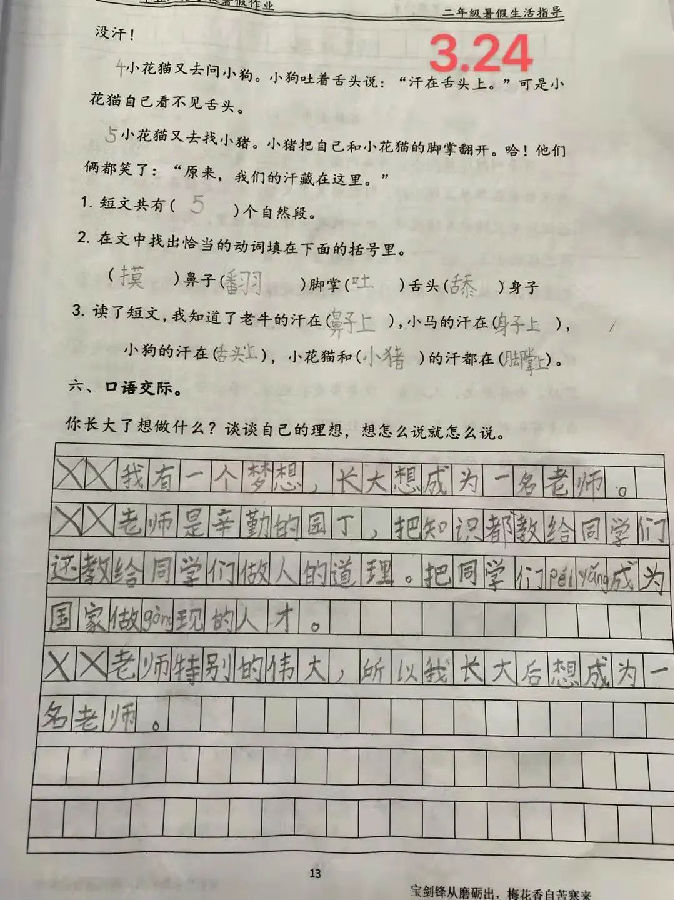 暑假作业
二年级暑假生活指导
3.24
没汗!
4小花猫又去问小狗。小狗吐着舌头说:“汗在舌头上。”可是小
花猫自己看不见舌头。
5小花猫又去找小猪。小猪把自己和小花猫的脚掌翻开。哈!他们
俩都笑了:“原来,我们的汗藏在这里。”
1. 短文共有( 5 )个自然段。
2. 在文中找出恰当的动词填在下面的括号里。
(摸 )鼻子(翻羽 )脚掌(吐 )舌头(舔 )身子
3. 读了短文,我知道了老牛的汗在(鼻子上),小马的汗在(身子上),
小狗的汗在(舌头上),小花猫和(小猪)的汗都在(脚掌上)。
六、口语交际。
你长大了想做什么?谈谈自己的理想,想怎么说就怎么说。
XX我有一个梦想,长大想成为一名老师。
XX老师是辛勤的园丁,把知识都教给同学们
还教给同学们做人的道理。把同学们péi yǎng成为
国家做gòng现的人才。
XX老师特别的伟大,所以我长大后想成为一
名老师。
13
宝剑锋从磨砺出,梅花香自苦寒来